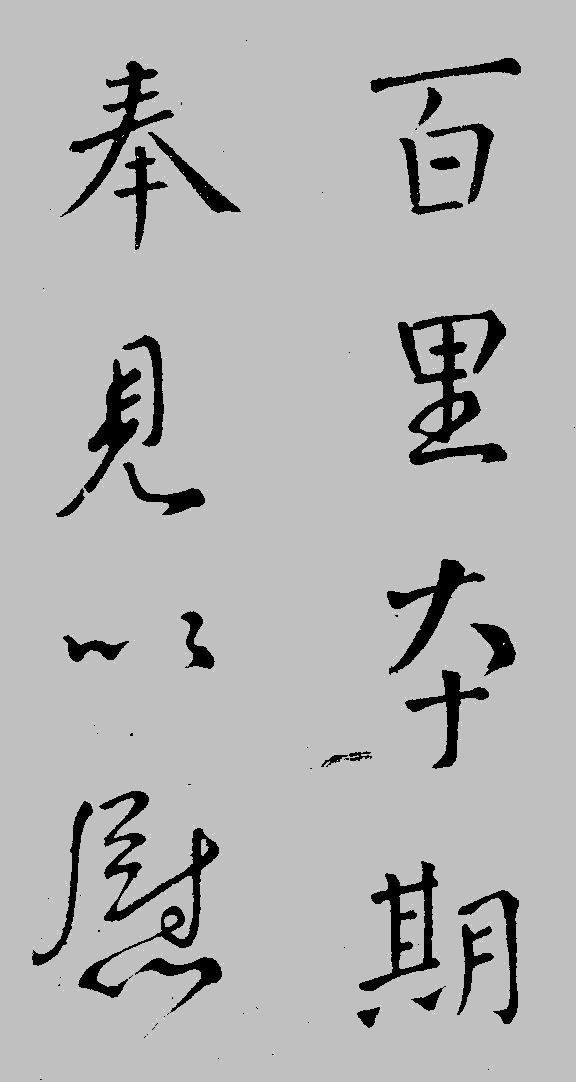 百里夲期
奉見以慰